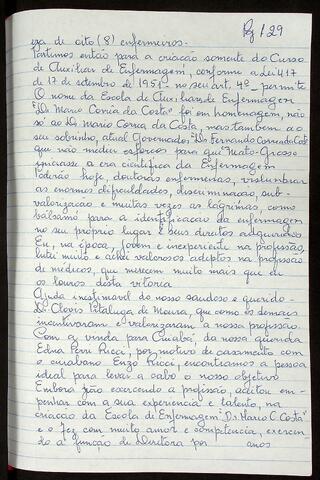 Pg 129
era de oito (8) enfermeiros.
Partimos então para a criação somente do Curso
de Auxiliar de Enfermagem, conforme a Lei 417
de 17 de setembro de 1951 - no seu art. 4º - permite
O nome da Escola de Auxiliar de Enfermagem
"Dr. Mario Correa da Costa" foi em homenagem, não
só ao Dr. Mario Correa da Costa, mas tambem ao
seu sobrinho, atual Governador, Dr. Fernando Correa da Costa
que não mediu esforços para que Mato-Grosso
iniciasse a era científica da Enfermagem
Poderão hoje, doutoras enfermeiras, vislumbrar
as enormes dificuldades, discriminação, sub-
valorização e muitas vezes as lágrimas, como
bálsamo para a identificação da enfermagem
no seu próprio lugar e seus direitos adquiridos
Eu, na época, jovem e inexperiente na profissão,
lutei muito e achei valorosos adeptos na profissão
de médicos, que merecem muito mais que eu
os louros desta vitoria
Ajuda inestimavel do nosso saudoso e querido -
Dr. Clovis Pitaluga de Moura, que como os demais
incentivaram e valorizaram a nossa profissão.
Com a vinda para Cuiabá, da nossa querida
Edna Perri Ricci, por motivo de casamento com
o cuiabano Enzo Ricci, encontramos a pessoa
ideal para levar a cabo o nosso objetivo
Embora não exercendo a profissão, aceitou em-
penhar com a sua experiencia e talento, na
criação da Escola de Enfermagem "Dr. Mario C. Costa"
e o fez com muito amor e competência, exercen-
do a função de Diretora por anos